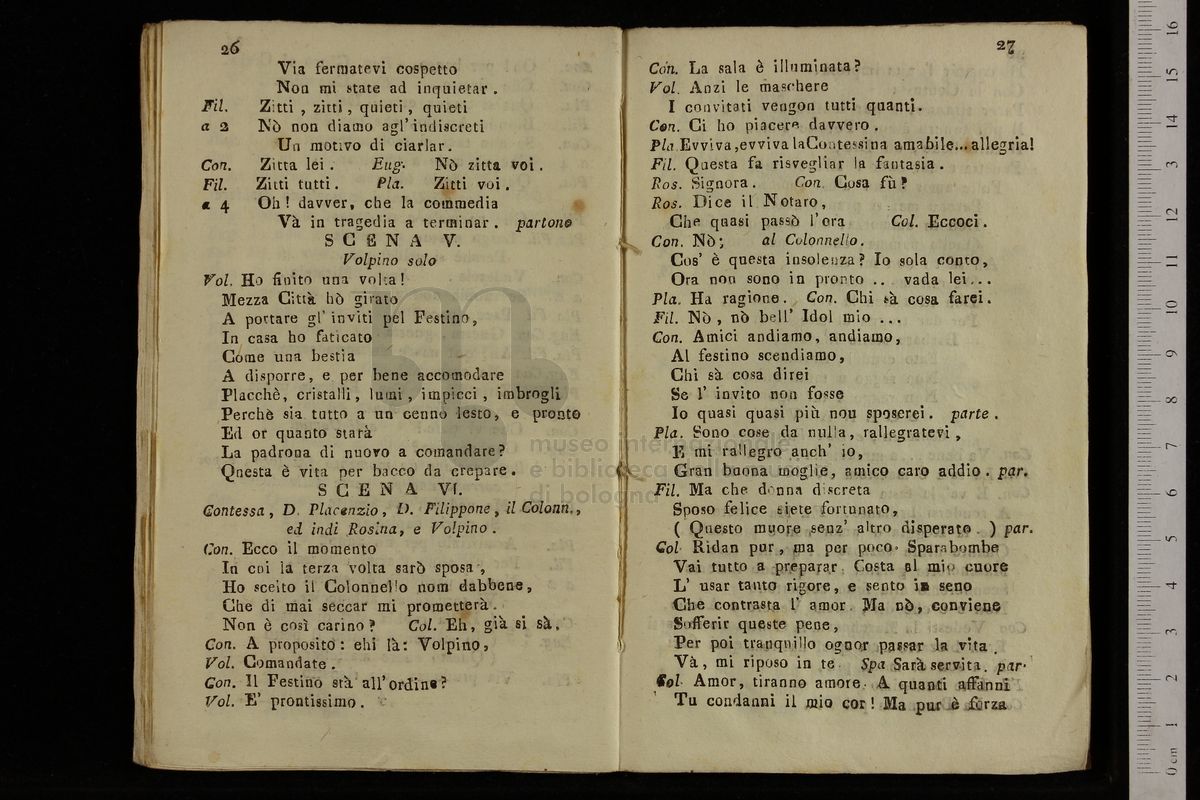 26
Via fermatevi cospetto
Non mi state ad inquietar .
Fil. Zitti , zitti , quieti , quieti
a 2 Nò non diamo agl' indiscreti
Un motivo di ciarlar.
Con. Zitta lei . Eug. Nò zitta voi .
Fil. Zitti tutti . Pla. Zitti voi .
a 4 Oh ! davver, che la commedia
Và in tragedia a terminar . partono
SCENA V.
Volpino solo
Vol. Ho finito una volta!
Mezza Città hò girato
A portare gl' inviti pel Festino,
In casa ho faticato
Come una bestia
A disporre, e per bene accomodare
Placchè, cristalli, lumi, impicci, imbrogli
Perchè sia tutto a un cenno lesto, e pronto
Ed or quanto starà
La padrona di nuovo a comandare?
Questa è vita per bacco da crepare.
SCENA VI.
Contessa, D. Placenzio, D. Filippone, il Colonn.,
ed indi Rosina, e Volpino .
Con. Ecco il momento
In cui la terza volta sarò sposa ,
Ho scelto il Colonnello uom dabbene,
Che di mai seccar mi prometterà .
Non è così carino? Col. Eh, già si sà.
Con. A proposito : ehi là: Volpino,
Vol. Comandate .
Con. Il Festino stà all' ordine?
Vol. E' prontissimo .
27
Con. La sala è illuminata?
Vol. Anzi le maschere
I convitati vengon tutti quanti.
Con. Ci ho piacere davvero .
Pla. Evviva, evviva la Contessina amabile... allegria!
Fil. Questa fa risvegliar la fantasia .
Ros. Signora . Con. Cosa fù?
Ros. Dice il Notaro,
Che quasi passò l' ora Col. Eccoci.
Con. Nò; al Colonnello.
Cos' è questa insolenza? Io sola conto,
Ora non sono in pronto .. vada lei...
Pla. Ha ragione. Con. Chi sà cosa farei.
Fil. Nò, nò bell' Idol mio ...
Con. Amici andiamo, andiamo,
Al festino scendiamo,
Chi sà cosa direi
Se l' invito non fosse
Io quasi quasi più non sposerei. parte .
Pla. Sono cose da nulla, rallegratevi,
E mi rallegro anch' io,
Gran buona moglie, amico caro addio . par.
Fil. Ma che donna discreta
Sposo felice siete fortunato,
( Questo muore senz' altro disperato . ) par.
Col. Ridan pur, ma per poco. Sparabombe
Vai tutto a preparar. Costa al mio cuore
L' usar tanto rigore, e sento in seno
Che contrasta l' amor. Ma nò, conviene
Sofferir queste pene,
Per poi tranquillo ognor passar la vita .
Và, mi riposo in te. Spa Sarà servita. par.
Col. Amor, tiranno amore. A quanti affanni
Tu condanni il mio cor! Ma pur è forza
museo internazionale
e biblioteca
di bologna